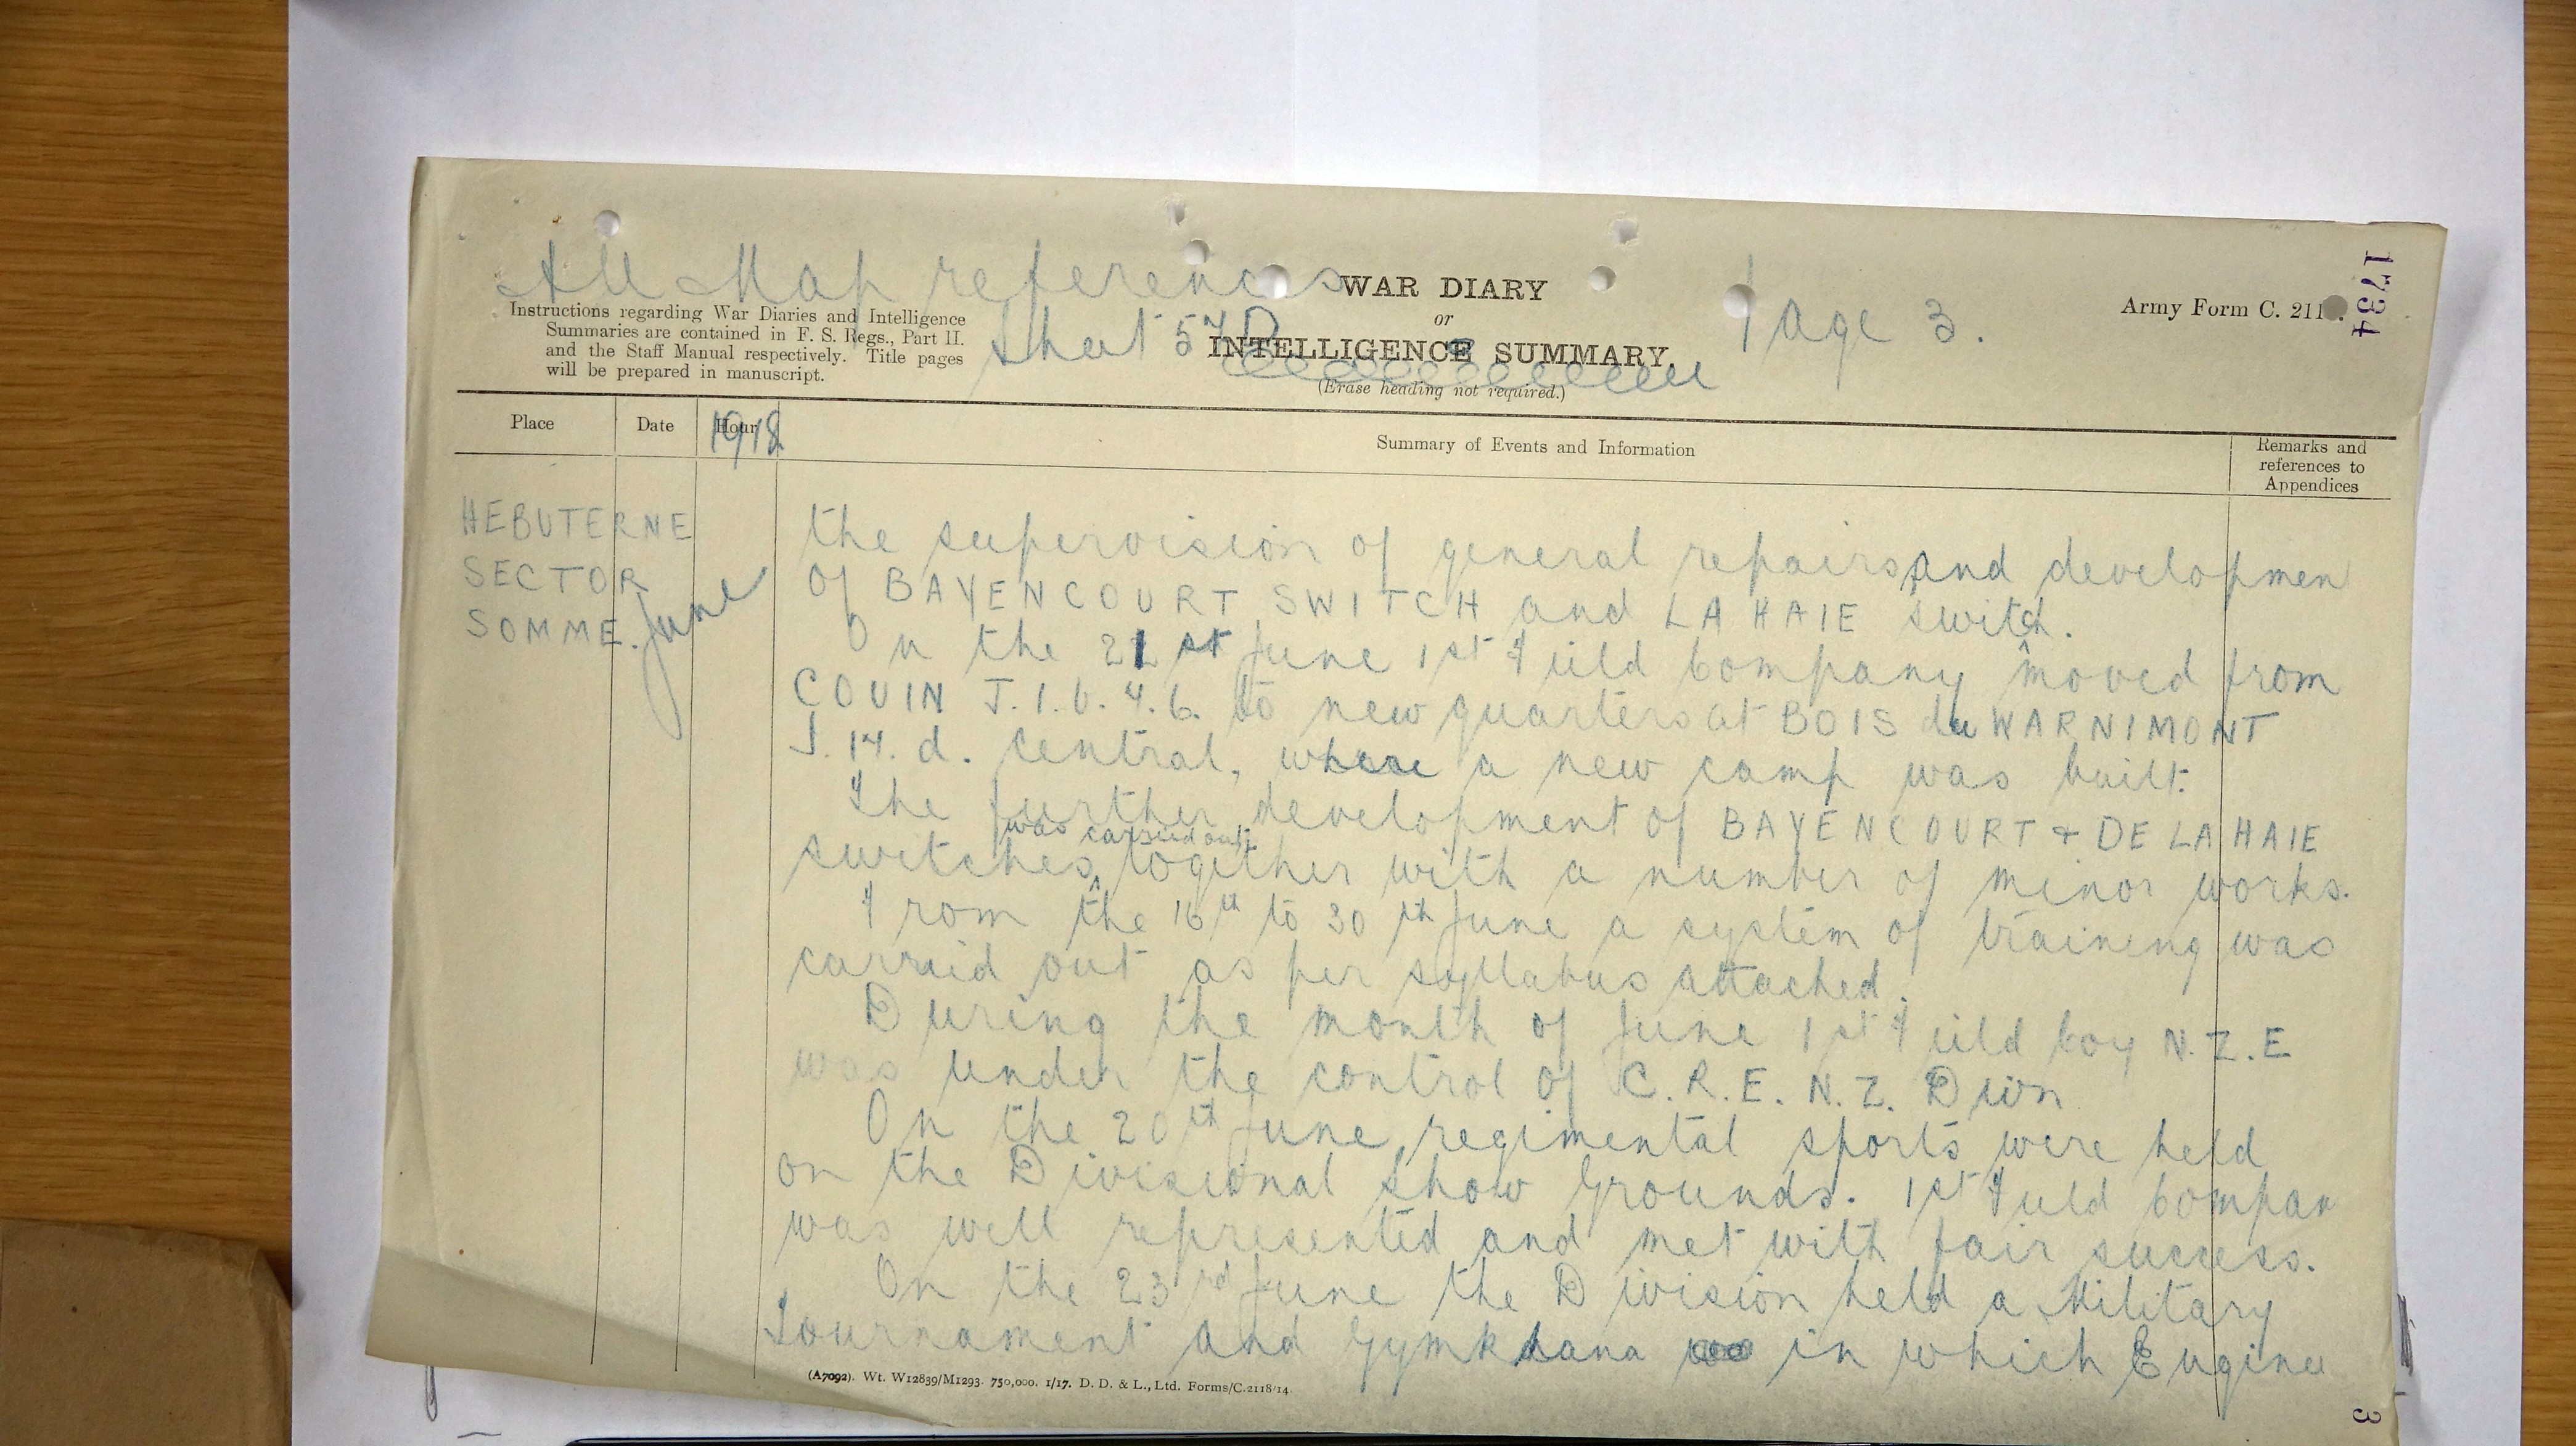 1794
All Map references
WAR DIARY
Page 3.
Army Form C. 211
Instructions regarding War Diaries and Intelligence
Summaries are contained in F. S. Regs., Part II.
and the Staff Manual respectively. Title pages
will be prepared in manuscript.
or
Sheet 57D
INTELLIGENCE SUMMARY.
(Erase heading not required.)
Place
Date
Hour
1918
Summary of Events and Information
Remarks and
references to
Appendices
HEBUTERNE
SECTOR
SOMME. June
the supervision of general repairs and developmen
of BAYENCOURT SWITCH and LA HAIE switch.
On the 21st June 1st Field Company moved from
COUIN J.1.b.4.6. to new quarters at BOIS du WARNIMONT
J.14.d. central, where a new camp was built.
The further development of BAYENCOURT + DE LA HAIE
was carried out
switches, together with a number of minor works.
From the 16th to 30th June a system of training was
carried out as per syllabus attached.
During the month of June 1st Field Coy N.Z.E
was under the control of C.R.E. N.Z. Divn
On the 20th June regimental sports were held
on the Divisional Show Grounds. 1st Field Compan
was well represented and met with fair success.
On the 23rd June the Division held a Military
Tournament and Gymkhana in which Enginee
(A7092). Wt. W12839/M1293. 750,000. 1/17. D. D. & L., Ltd. Forms/C.2118/14.
3